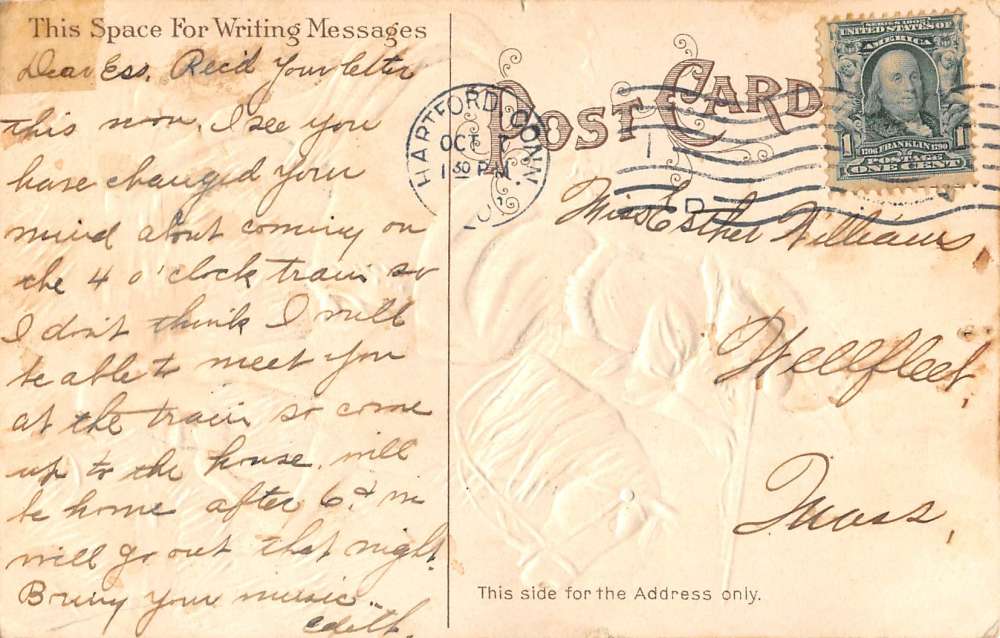 This Space For Writing Messages
Dear Ess. Rec'd your letter
this morn. I see you
have changed your
mind about coming on
the 4 o'clock train so
I don't think I will
be able to meet you
at the train so come
up to the house. will
be home after 6 &
will go out that night.
Bring your music.
Edith.
POST CARD
HARTFORD, CONN.
OCT
1 30 PM
SERIES 1902
UNITED STATES OF
AMERICA
1706 FRANKLIN 1790
1 1
POSTAGE
ONE CENT
Miss Esther Williams,
Wellfleet,
Mass,
This side for the Address only.